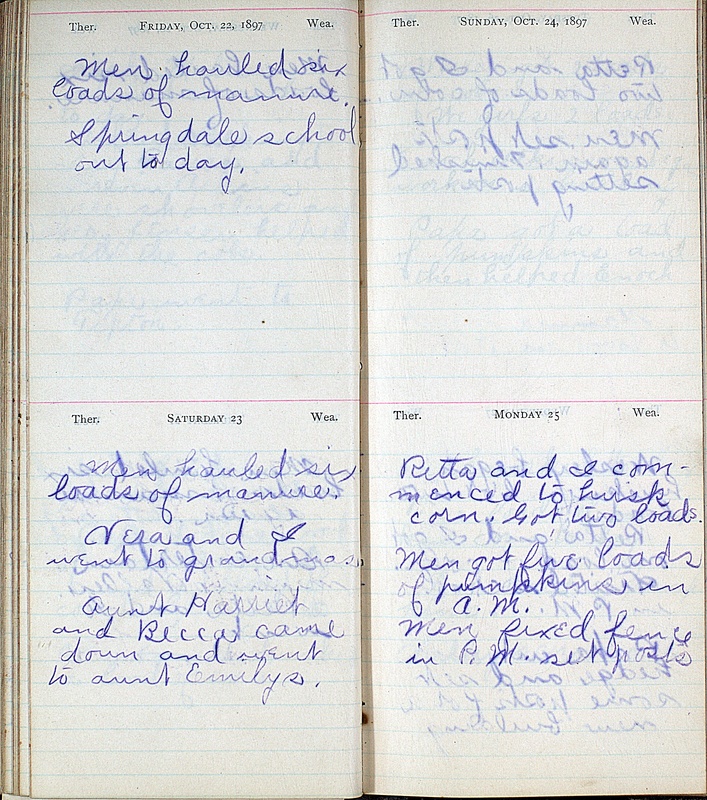 Ther. FRIDAY, OCT. 22, 1897 Wea.
Men hauled six
loads of manure.
Springdale school
out to day.
Ther. SATURDAY 23 Wea.
Men hauled six
loads of manure.
Vera and I
went to grandmas.
Aunt Harriet
and Becca came
down and went
to aunt Emilys.
Ther. SUNDAY, OCT. 24, 1897 Wea.
Ther. MONDAY 25 Wea.
Retta and I com-
menced to husk
corn. Got two loads.
Men got five loads
of pumpkins in
A. M.
Men fixed fence
in P. M. set posts